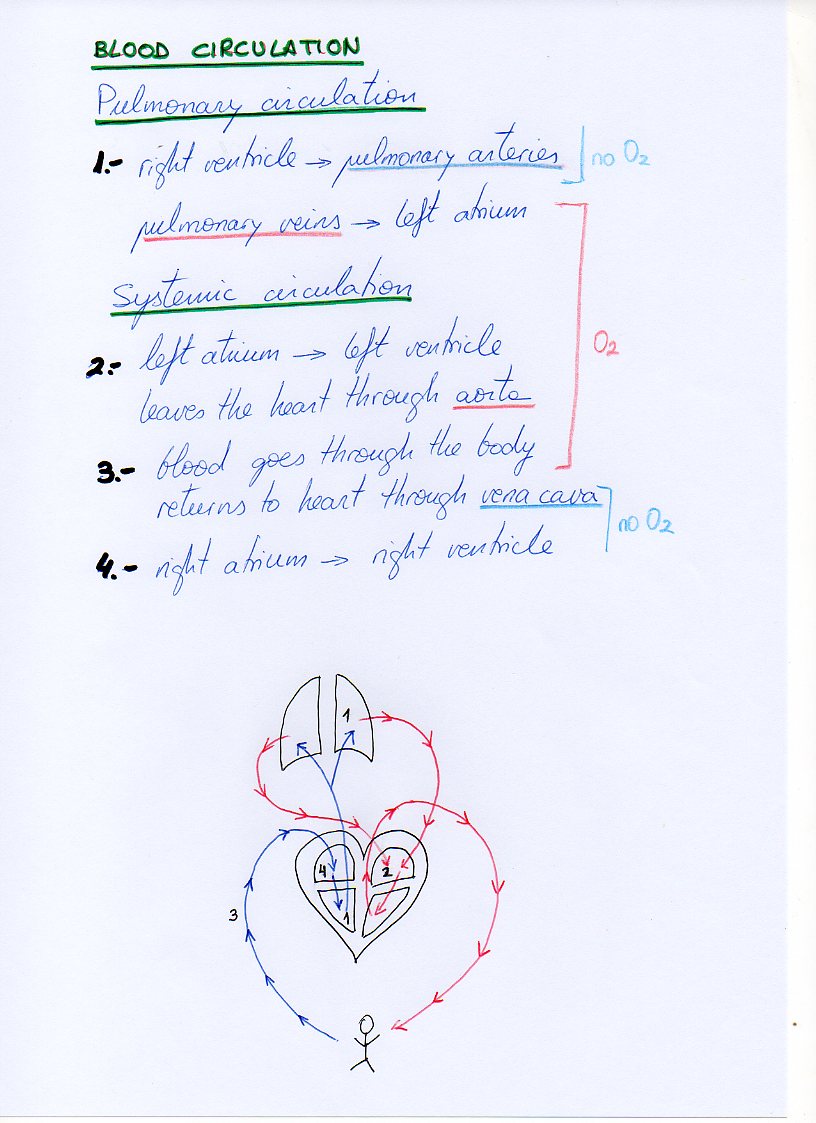 BLOOD CIRCULATION
Pulmonary circulation
1.- right ventricle → pulmonary arteries no O2
pulmonary veins → left atrium
Systemic circulation
O2
2.- left atrium → left ventricle
leaves the heart through aorta
3.- blood goes through the body
returns to heart through vena cava
no O2
4.- right atrium → right ventricle
1
4 2
3 1